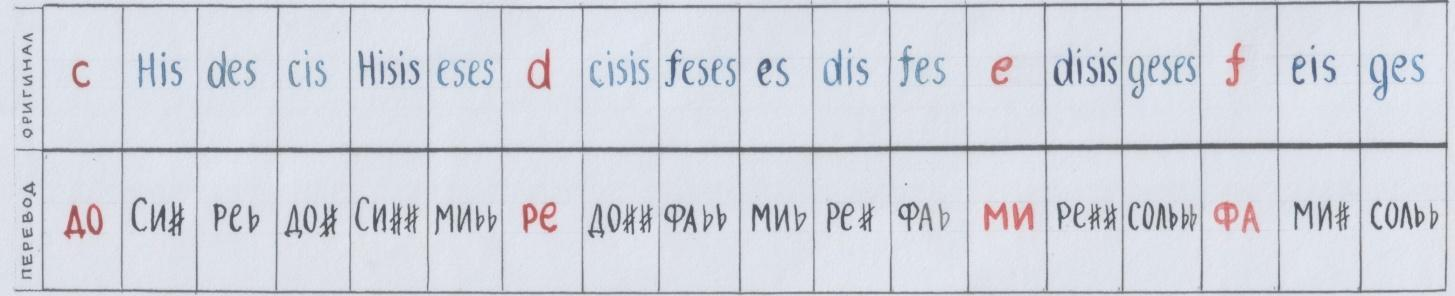 ОРИГИНАЛ c His des cis Hisis eses d cisis feses es dis fes e disis geses f eis ges
ПЕРЕВОД ДО СИ# РЕ♭ ДО# СИ## МИ♭♭ РЕ ДО## ФА♭♭ МИ♭ РЕ# ФА♭ МИ РЕ## СОЛЬ♭♭ ФА МИ# СОЛЬ♭